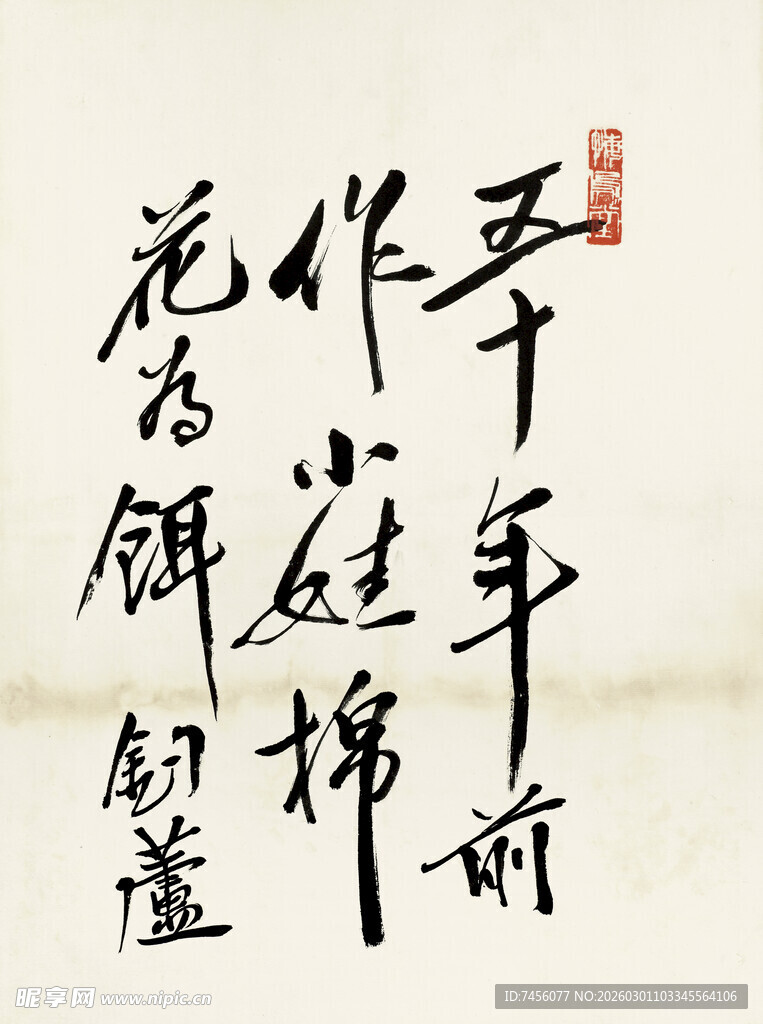 五十年前
作小娃棉
花为餌釣蘆
昵享网 www.nipic.cn
ID:7456077 NO:20260301103345564106